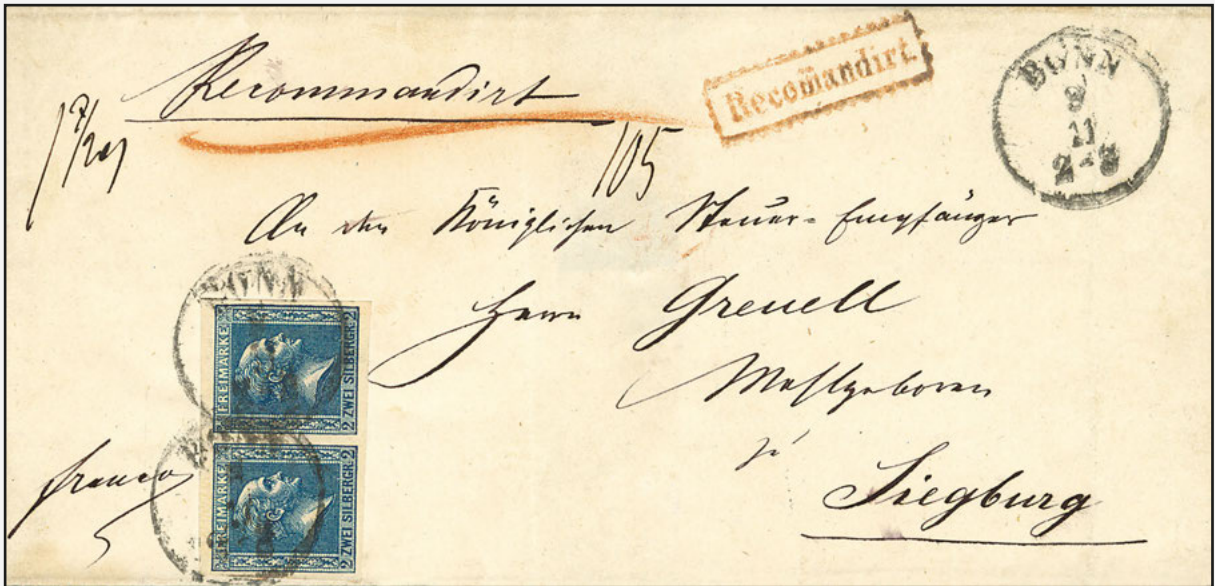 Recommandirt
Recom̄andirt
BONN
9
11
2-3
105
An den Königlichen Steuer-Empfänger
Herrn Greuell
Wohlgeboren
zu
Siegburg
franco
BONN
FREIMARKE
2 ZWEI SILBERGR. 2
FREIMARKE
2 ZWEI SILBERGR. 2